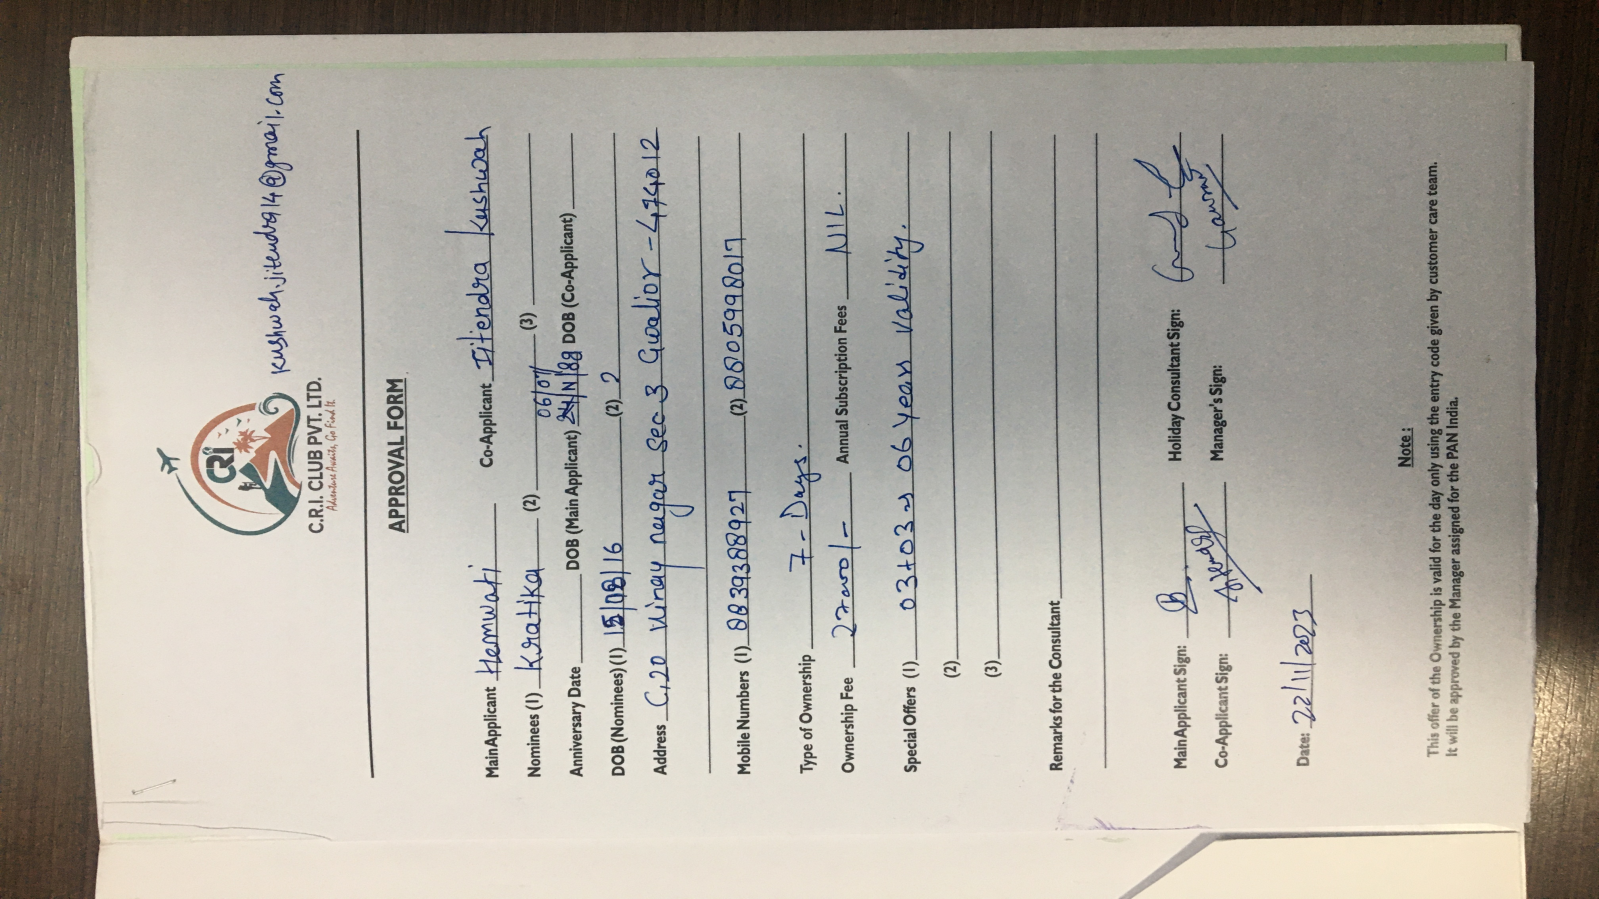 kushwah.jitendra914@gmail.com
CRI
C.R.I. CLUB PVT. LTD.
Adventure Awaits, Go Find It.
APPROVAL FORM
Main Applicant Hemwati Co-Applicant Jitendra Kushwah
Nominees (1) Kratika (2) (3)
06/07/
Anniversary Date DOB (Main Applicant) 24/N/88 DOB (Co-Applicant)
DOB (Nominees) (1) 15/08/16 (2) 2
Address C,20 Vinay nagar Sec 3 Gwalior - 474012
Mobile Numbers (1) 08839388927 (2) 08805998017
Type of Ownership 7 - Days.
Ownership Fee 27000/- Annual Subscription Fees NIL.
Special Offers (1) 03+03 06 years validity.
(2)
(3)
Remarks for the Consultant
Main Applicant Sign: Holiday Consultant Sign:
Co-Applicant Sign: Manager's Sign:
Date: 22/11/2023
Note :
This offer of the Ownership is valid for the day only using the entry code given by customer care team.
It will be approved by the Manager assigned for the PAN India.